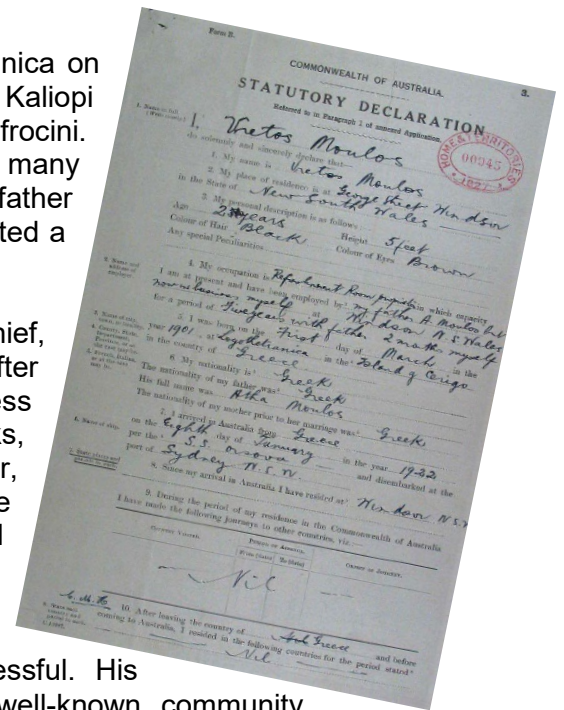 nica on
Kaliopi
frocini.
many
father
ted a
hief,
fter
ess
ks,
r,
e
l
essful. His
well-known community
Form B.
2.
COMMONWEALTH OF AUSTRALIA.
STATUTORY DECLARATION
Referred to in Paragraph 1 of annexed Application.
HOME & TERRITORIES
00945
1927
I, Vretos Moulos
do solemnly and sincerely declare that—
1. My name is Vretos Moulos
2. My place of residence is at George Street Windsor
in the State of New South Wales
3. My personal description is as follows:
Age years Height 5 feet
Colour of Hair Black Colour of Eyes Brown
Any special Peculiarities
4. My occupation is Refreshment Room in which capacity
I am at present and have been employed by my father A. Moulos but
now in business myself, at Windsor N.S. Wales
for a period of Five years with father 2 months myself
5. I was born on the First day of March in the
year 1901, at Logothetianica in the Island of Cerigo
in the country of Greece
6. My nationality is Greek
The nationality of my father was Greek
His full name was Moulos
The nationality of my mother prior to her marriage was Greek
7. I arrived in Australia from Greece
on the Eighth day of January in the year 1922
per the S.S. and disembarked at the
port of Sydney N.S.W.
8. Since my arrival in Australia I have resided at Windsor N.S.W
9. During the period of my residence in the Commonwealth of Australia
I have made the following journeys to other countries, viz.:—
Country Visited. Period of Absence. Object of Journey.
From (Date) To (Date)
Nil
10. After leaving the country of Greece and before
coming to Australia, I resided in the following countries for the period stated
Nil